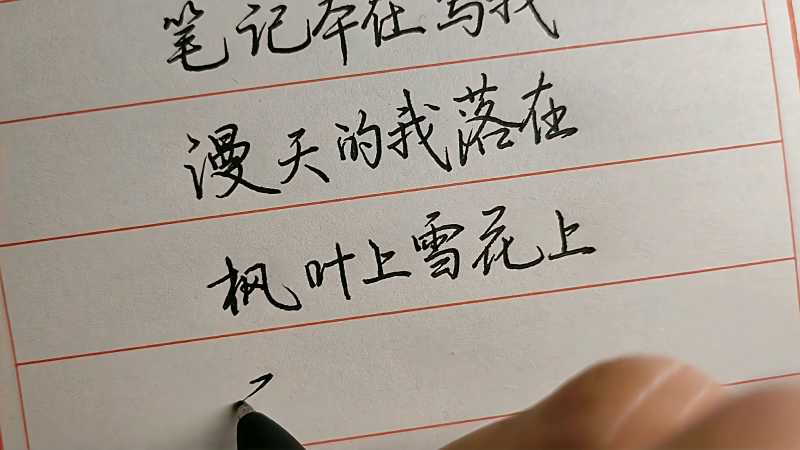 笔记本在写我
漫天的我落在
枫叶上雪花上